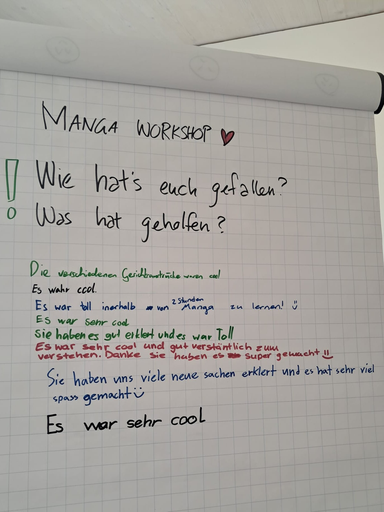 MANGA WORKSHOP
! Wie hat's euch gefallen?
Was hat geholfen?
Die verschiedenen waren cool
Es wahr cool.
Es war toll inerhalb von 2 Stunden Manga zu lernen! :)
Es war sehr cool
Sie haben es gut erklert und es war Toll
Es war sehr cool und gut verständlich zum
verstehen. Danke sie haben es super gemacht!!
Sie haben uns viele neue sachen erklert und es hat sehr viel
spass gemacht :)
Es war sehr cool